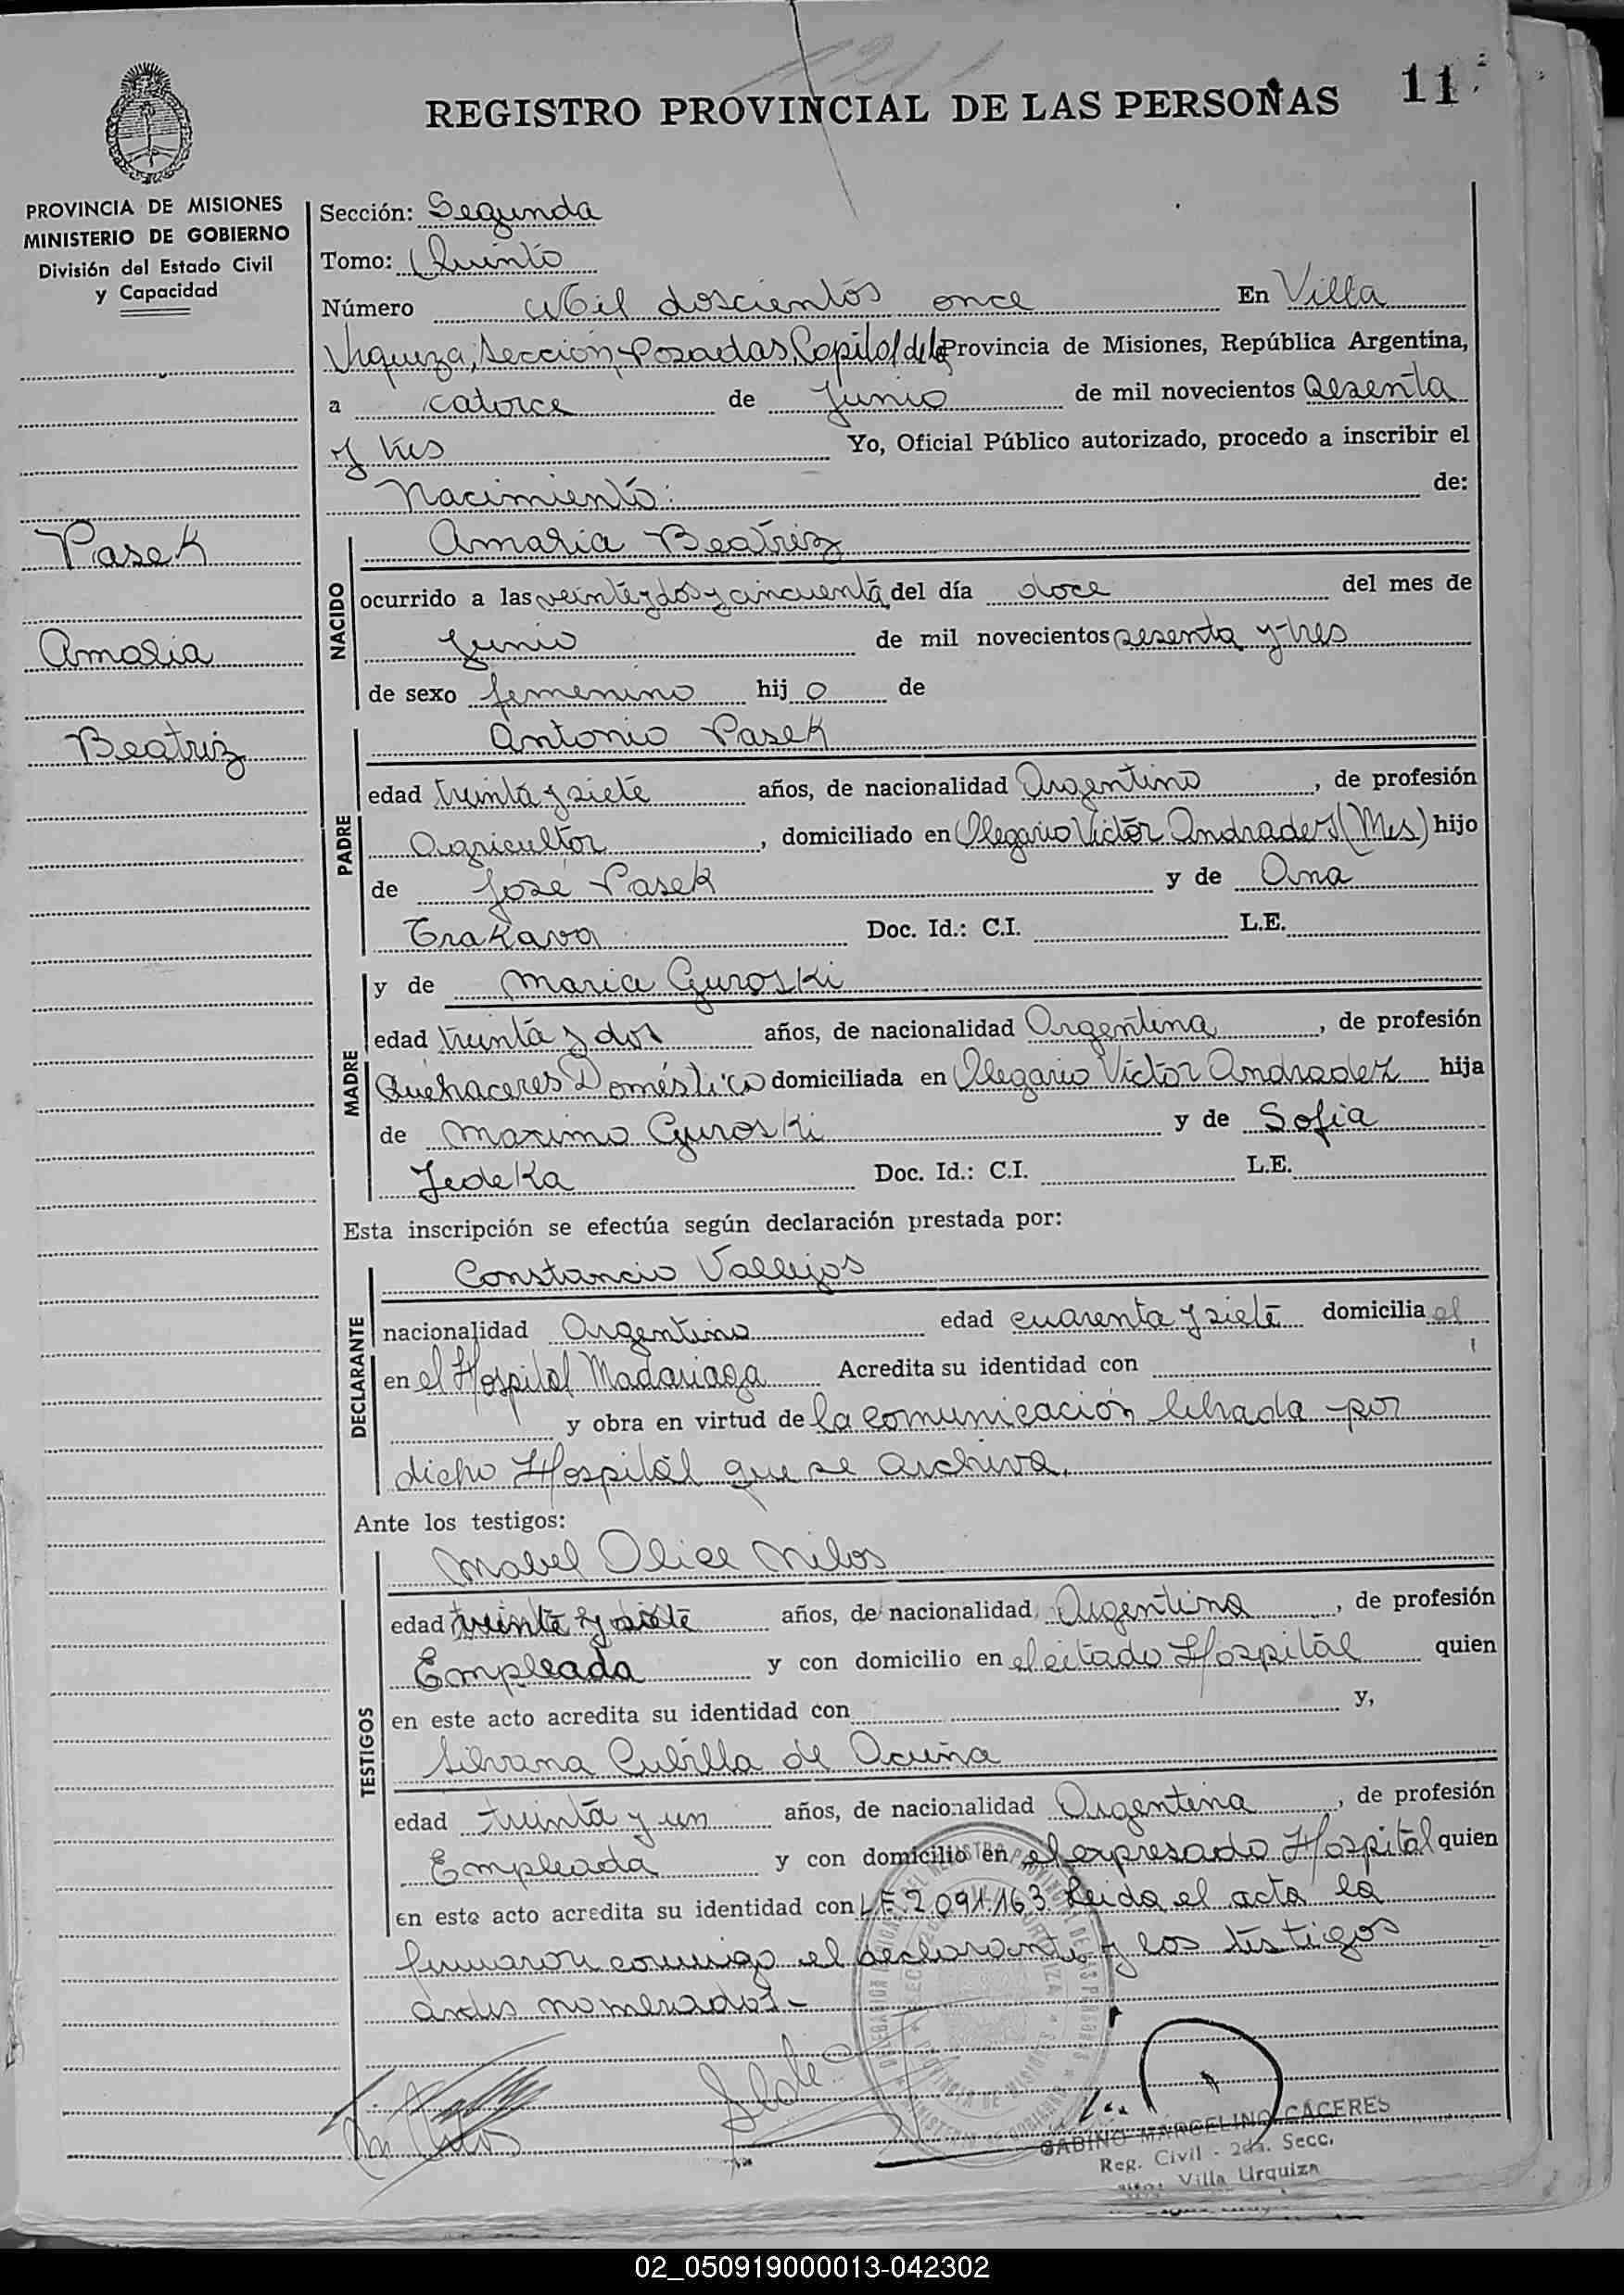 1211
REGISTRO PROVINCIAL DE LAS PERSONAS 11
PROVINCIA DE MISIONES
MINISTERIO DE GOBIERNO
División del Estado Civil
y Capacidad
Pasek
Amalia
Beatriz
Sección: Segunda
Tomo: Quinto
Número Mil doscientos once En Villa
Urquiza, Sección, Posadas, Capital de la Provincia de Misiones, República Argentina,
a catorce de Junio de mil novecientos sesenta
y tres Yo, Oficial Público autorizado, procedo a inscribir el
Nacimiento: de:
NACIDO
Amalia Beatriz
ocurrido a las veintey dos y cincuenta del día doce del mes de
Junio de mil novecientos sesenta y tres
de sexo femenino hij o de
PADRE
Antonio Pasek
edad treinta y siete años, de nacionalidad Argentino, de profesión
Agricultor, domiciliado en Olegario Víctor Andrades (Mis) hijo
de José Pasek y de Ana
Trakava Doc. Id.: C.I. L.E.
MADRE
y de Maria Guroski
edad treinta y dos años, de nacionalidad Argentina, de profesión
Quehaceres Doméstico domiciliada en Olegario Victor Andradez hija
de Maximo Guroski y de Sofia
Jedeka Doc. Id.: C.I. L.E.
Esta inscripción se efectúa según declaración prestada por:
DECLARANTE
Constancio Vallejos
nacionalidad Argentino edad cuarenta y siete domicilia el
en el Hospital Madariaga Acredita su identidad con
y obra en virtud de la comunicación librada por
dicho Hospital que se archiva.
Ante los testigos:
TESTIGOS
Mabel Olice Milos
edad treinta y siete años, de nacionalidad Argentina, de profesión
Empleada y con domicilio en el citado Hospital quien
en este acto acredita su identidad con y,
Silvana Cubilla de Acuña
edad treinta y un años, de nacionalidad Argentina, de profesión
Empleada y con domicilio en el expresado Hospital quien
en este acto acredita su identidad con L.E. 2.091.163. Leida el acta la
firmaron conmigo el declarante y los testigos
antes nomerados.-
GABINO MARCELINO CACERES
Reg. Civil - 2da. Secc.
Villa Urquiza
02_050919000013-042302